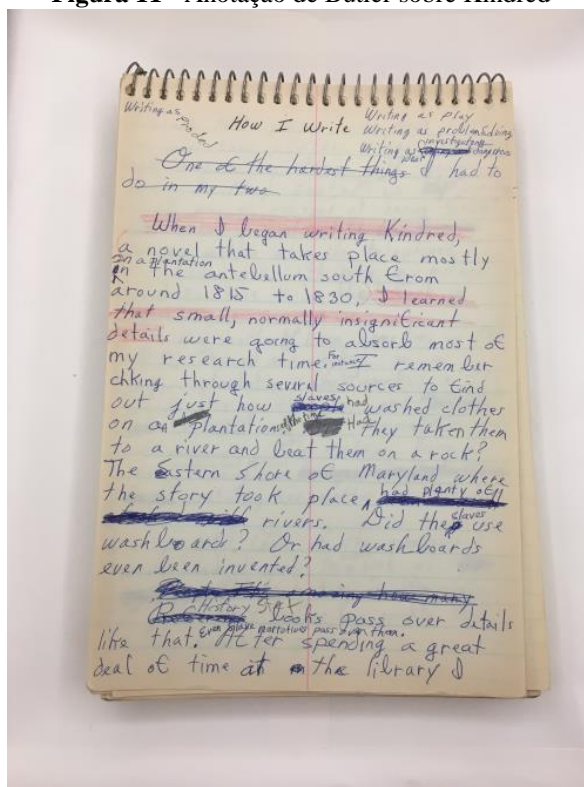 Figura 11 - Anotação de Butler sobre Kindred
Writing as
Writing as play
How I Write
Writing as problem solving
Writing as investigations
One of the hardest things I had to
do in my two
When I began writing Kindred,
a novel that takes place mostly
on a plantation
in the antebellum south from
around 1815 to 1830, I learned
that small, normally insignificant
details were going to absorb most of
my research time. For instance I remember
chking through several sources to find
out just how slaves had washed clothes
on a plantation. Had they taken them
to a river and beat them on a rock?
The Eastern Shore of Maryland where
the story took place had plenty of
rivers. Did the slaves use
washboards? Or had washboards
even been invented?
amazing how many
History books pass over details
like that. Even slave narratives pass over them. After spending a great
deal of time at the library I